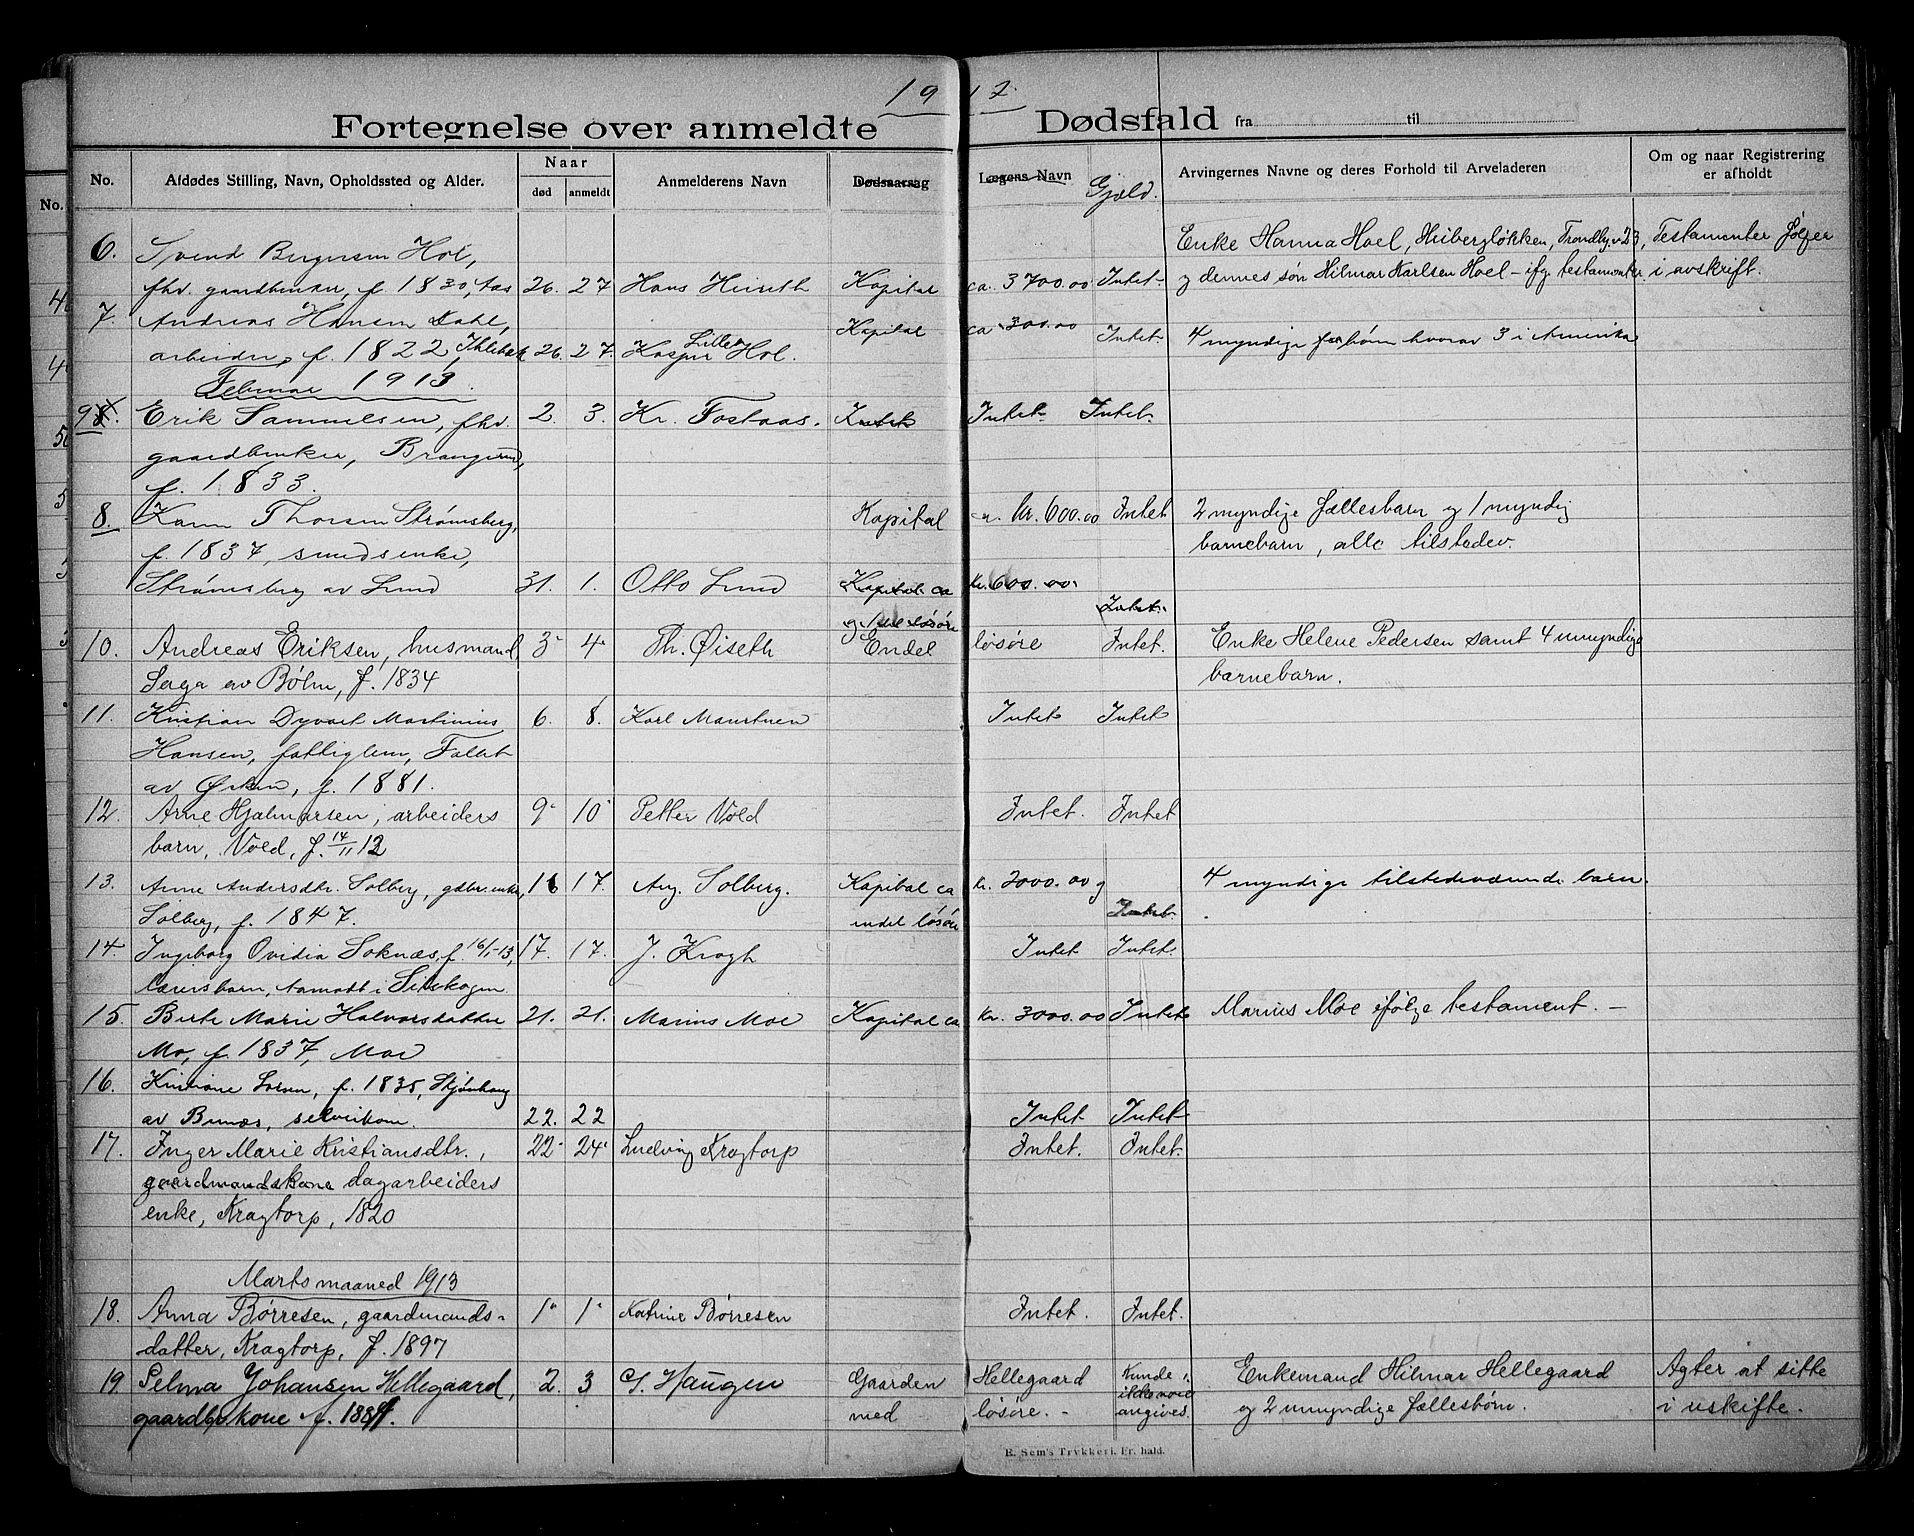 19 12.
Fortegnelse over anmeldte Dødsfald fra til
No. Afdødes Stilling, Navn, Opholdssted og Alder. Naar død anmeldt Anmelderens Navn Dødsaarsag Lægens Navn Gjæld. Arvingernes Navne og deres Forhold til Arveladeren Om og naar Registrering er afholdt
6. Svend Hol, Enke Hanna Hoel, Trondhj.v. 23, Testamenter følger
fhv. gaardbruker, f. 1830, Aas 26. 27 Hans Kapital ca. 3700.00 Intet. og dennes søn Hilmar Karlsen Hoel – ifg. testamenter i avskrift.
7. Andreas Hansen Dahl, Kapital ca 300.00
arbeider, f. 1822, 26. 27. Kasper Lille Hol. Intet. 4 myndige børn hvorav 3 i Amerika
Februar 1913.
9. Erik Samuelsen, fhv. 2. 3. Kr. Fostaas. Intet Intet. Intet.
gaardbruker,
f. 1833.
8. Karen Thorsen Strømsberg, Kapital ca. kr. 600.00 Intet 2 myndige fællesbarn og 1 myndig
f. 1837, smedsenke, barnebarn, alle tilstedev.
Strømsberg av Lund 31. 1. Otto Lund Kapital ca kr. 600.00.
og løsøre Intet.
10. Andreas Eriksen, husmand 3. 4. Th. Øiseth Endel løsøre Intet. Enke Helene Pedersen samt 4 umyndige
Saga av Bølen, f. 1834 barnebarn.
11. Kristian Dyvart Martinius 6. 8. Karl Intet Intet
Hansen, fattiglem, Fallet
av Ørken, f. 1881.
12. Arne Hjalmarsen, arbeiders 9. 10 Petter Vold Intet. Intet
barn, Vold, f. 14/11 12
13. Anne Andersdtr. Solberg, gdbr.enke, 16 17. Aug. Solberg. Kapital ca kr. 2000.00 og 4 myndige tilstedeværende barn.
Solberg, f. 1847. endel løsøre Intet.
14. Ingeborg Ovidia Soknæs, f. 16/1-13, 17. 17. J. Krogh Intet Intet.
barn, Aamodt i
15. Berte Marie Halvorsdatter 21. 21. Marius Moe Kapital ca kr. 3000.00 Intet Marius Moe ifølge testament. –
Mo, f. 1837, Moe
16. Kristiane Larsen, f. 1835,
av 22. 22 Intet Intet
17. Inger Marie Kristiansdtr., 22. 24. Ludvig Kragtorp Intet. Intet.
gaardmandskone dagarbeiders
enke, Kragtorp, 1820
Marts maaned 1913
18. Anna Børresen, gaardmands- 1. 1. Katrine Børresen Intet. Intet.
datter, Kragtorp, f. 1897
19 Selma Johansen Hellegaard, 2. 3 S. Haugen Gaarden Hellegaard Kunde ikke Enkemand Hilmar Hellegaard Agter at sitte
gaardbr.kone f. 1884. med løsøre. – angives. og 2 umyndige fællesbørn. i uskifte.
E. Sem's Trykkeri. Fr.hald.
No.